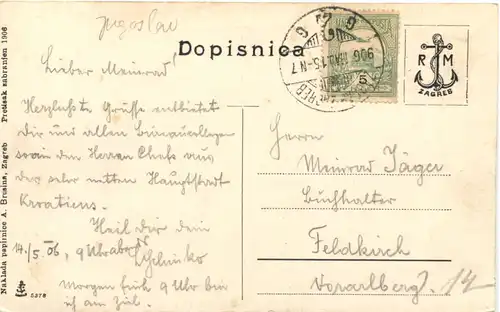 Jugoslav
Dopisnica
Lieber Meinrad!
Herzlichste Grüsse entbietet
Dir und allen
sowie den Herren Chefs aus
der sehr netten Hauptstadt
Kroatiens.
Heil Dir dein
14./5.06, 9 Uhr abds
Morgen früh 9 Uhr bin
ich am Ziel.
Herrn
Meinrad Jäger
Buchhalter
Feldkirch
Vorarlberg. 14
R M
ZAGREB
5
906
Naklada papirnice A. Brusina, Zagreb Pretisak zabranjen 1906
5378